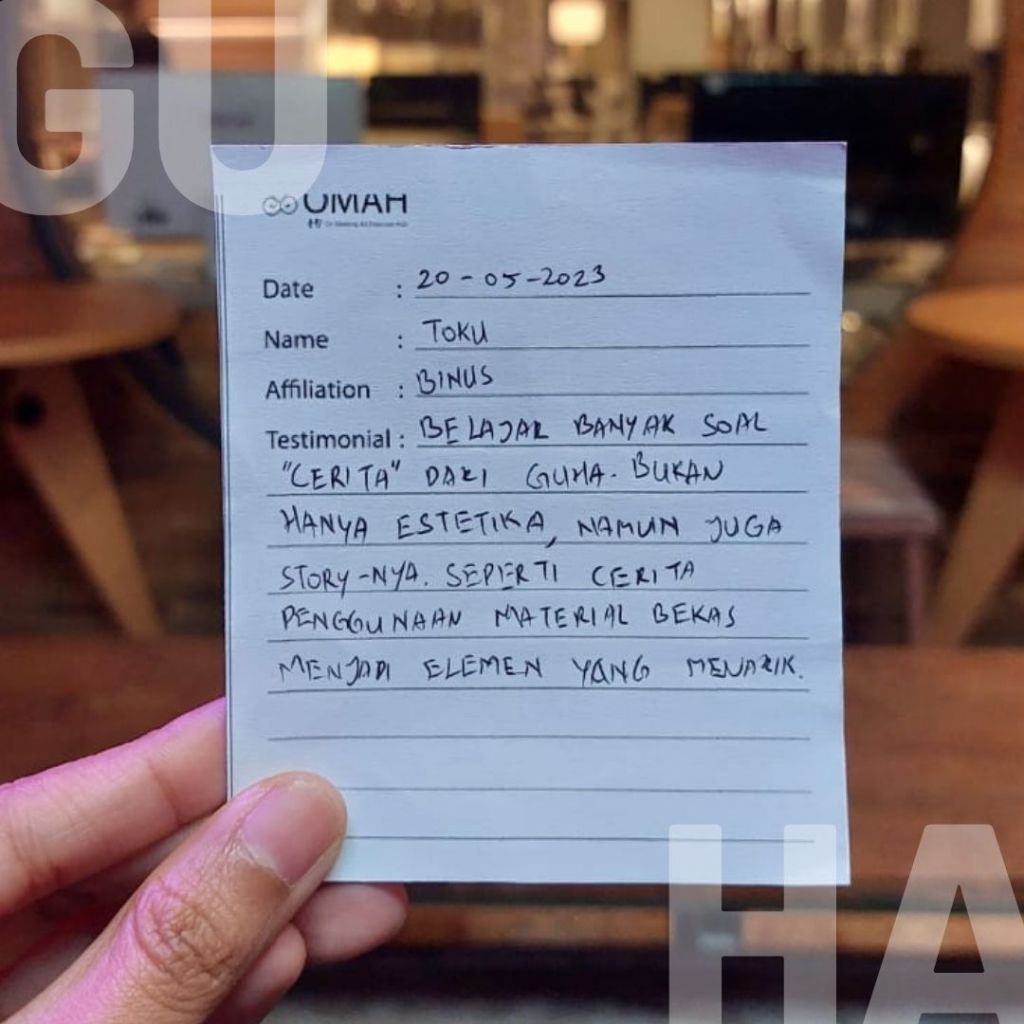 GU
OMAH
Date : 20-05-2023
Name : TOKU
Affiliation : BINUS
Testimonial : BELAJAR BANYAK SOAL
"CERITA" DARI GUHA. BUKAN
HANYA ESTETIKA, NAMUN JUGA
STORY-NYA. SEPERTI CERITA
PENGGUNAAN MATERIAL BEKAS
MENJADI ELEMEN YANG MENARIK.
HA